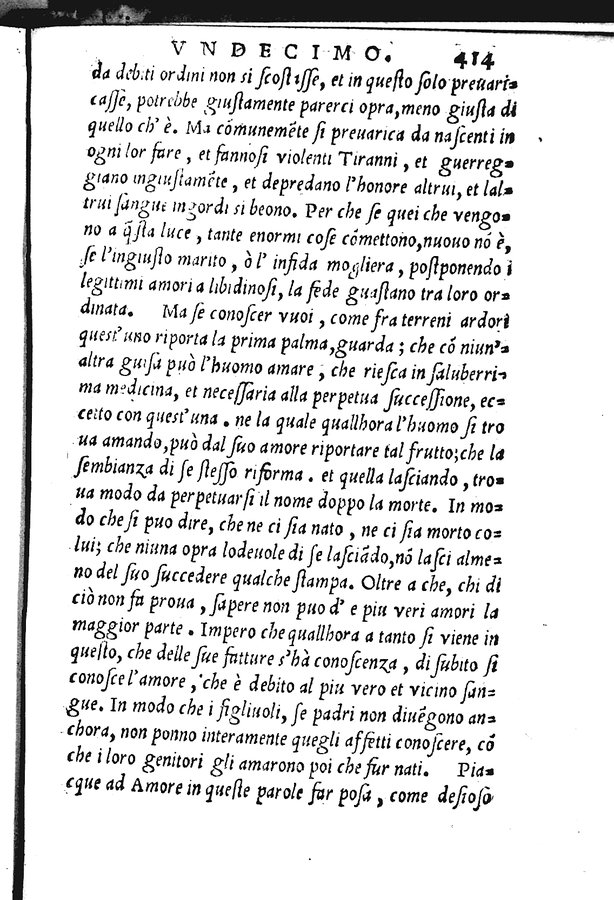 VNDECIMO. 414
da debiti ordini non si ſcoſtiſſe, et in queſto ſolo preuari-
caſſe, potrebbe giuſtamente parerci opra, meno giuſta di
quello ch' è. Ma cõmunemẽte ſi preuarica da naſcenti in
ogni lor fare, et fannoſi violenti Tiranni, et guerreg-
giano ingiuſtamẽte, et depredano l'honore altrui, et lal-
trui ſangue ingordi si beono. Per che ſe quei che vengo-
no a q̃ſta luce, tante enormi coſe cõmettono, nuouo nõ è,
ſe l'ingiuſto marito, ò l' infida mogliera, poſtponendo i
legittimi amori a libidinoſi, la fede guaſtano tra loro or-
dinata. Ma ſe conoſcer vuoi, come fra terreni ardori
queſt' uno riporta la prima palma, guarda; che cõ niun'-
altra guiſa può l'huomo amare, che rieſca in ſaluberri-
ma medicina, et neceſſaria alla perpetua ſucceſſione, ec-
cetto con queſt' una. ne la quale quallhora l'huomo ſi tro
ua amando, può dal ſuo amore riportare tal frutto; che la
ſembianza di ſe ſteſſo riforma. et quella laſciando, tro-
ua modo da perpetuarſi il nome doppo la morte. In mo-
do che ſi puo dire, che ne ci ſia nato, ne ci ſia morto co-
lui; che niuna opra lodeuole di ſe laſciãdo, nõ laſci alme-
no del ſuo ſuccedere qualche ſtampa. Oltre a che, chi di
ciò non fa proua, ſapere non puo d' e piu veri amori la
maggior parte. Impero che quallhora a tanto ſi viene in
queſto, che delle ſue fatture s'hà conoſcenza, di ſubito ſi
conoſce l'amore, che è debito al piu vero et vicino ſan-
gue. In modo che i figliuoli, ſe padri non diuẽgono an-
chora, non ponno interamente quegli affetti conoſcere, cõ
che i loro genitori gli amarono poi che fur nati. Pia-
cque ad Amore in queſte parole far poſa, come deſioſo